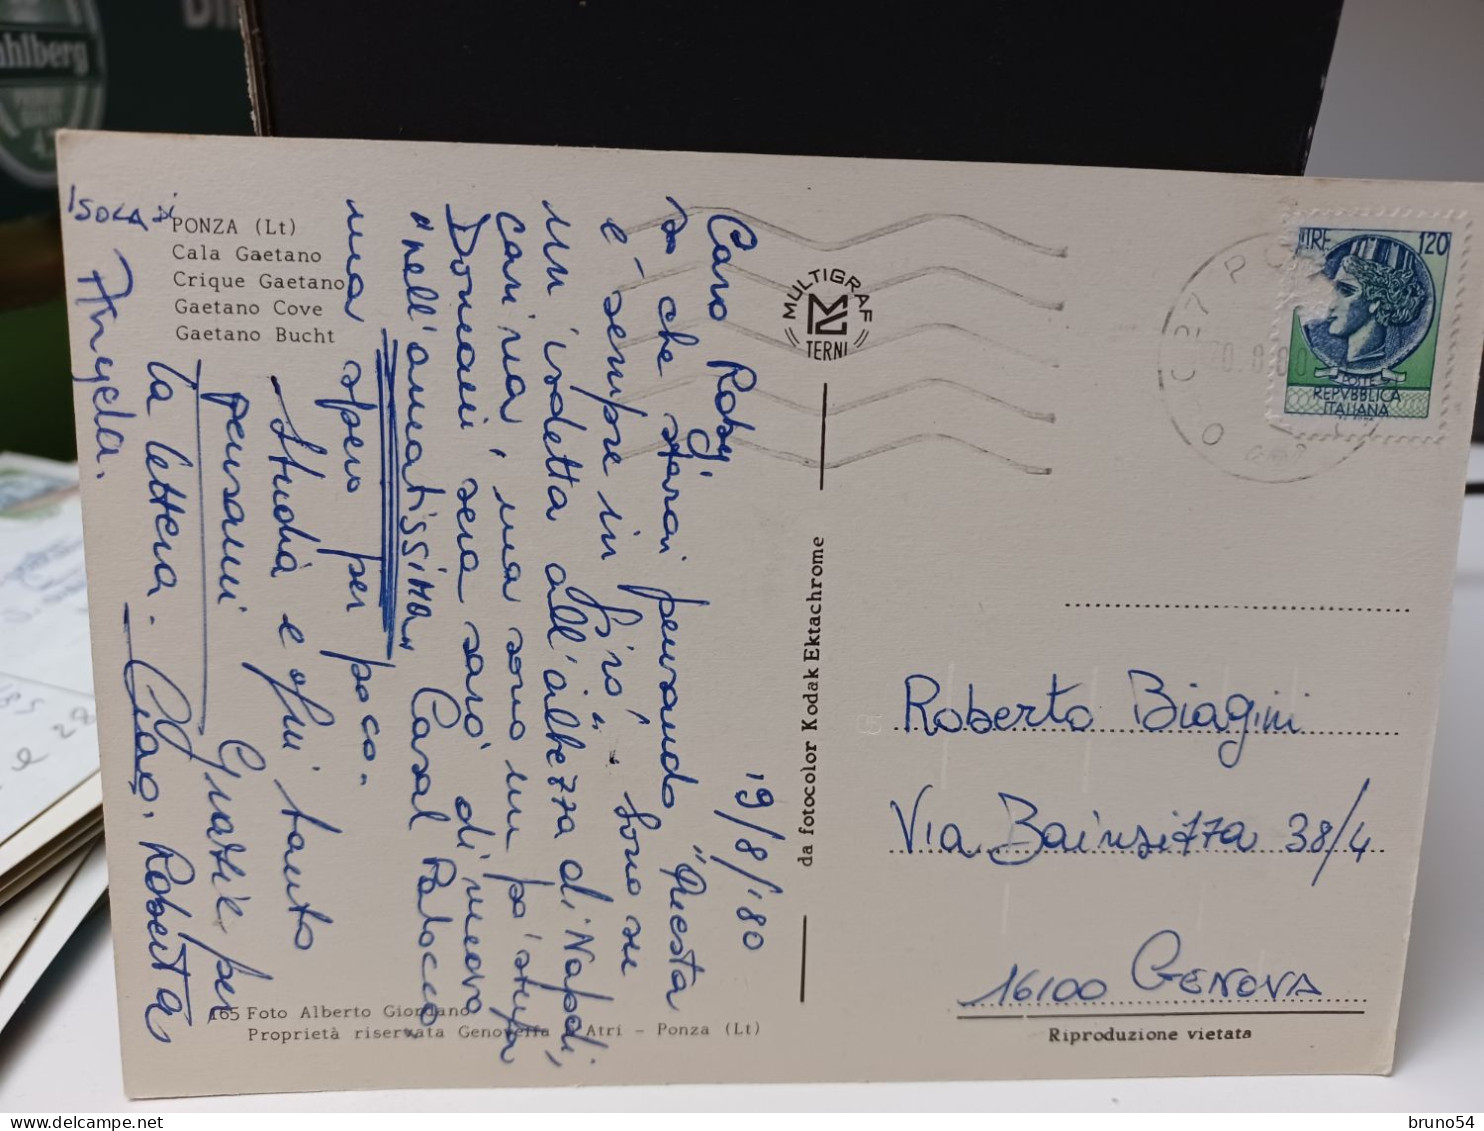 ahlberg
ISOLA di
PONZA (Lt)
Cala Gaetano
Crique Gaetano
Gaetano Cove
Gaetano Bucht
19/8/'80
Caro Roby,
so che starai pensando "Questa
è sempre in giro". Sono su
un'isoletta all'altezza di Napoli,
carina, ma sono un po' stufa
Domani sera sarò di nuovo
"nell'amatissima" Casal Palocco
ma spero per poco.
Studia e ogni tanto
pensami Grazie per
la lettera. Ciao. Roberta
Angela.
165 Foto Alberto Giordano
Proprietà riservata Genoveffa D'Atri - Ponza (Lt)
MULTIGRAF
TERNI
da fotocolor Kodak Ektachrome
LIRE 120
POSTE
REPVBBLICA
ITALIANA
Roberto Biagini
Via Bainsizza 38/4
16100 GENOVA
Riproduzione vietata
bruno54